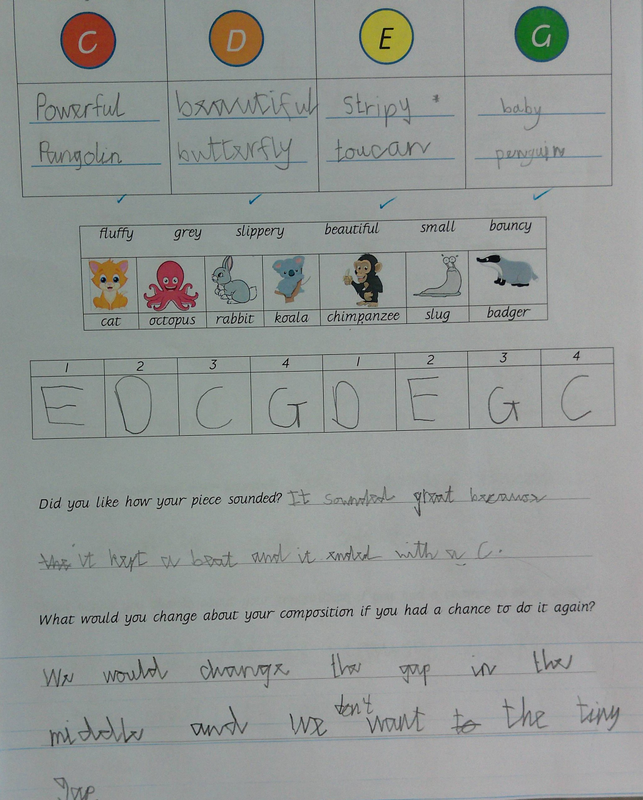 C D E G
Powerful beautiful Stripy * baby
Pangolin butterfly toucan penguin
fluffy grey slippery beautiful small bouncy
cat octopus rabbit koala chimpanzee slug badger
1 2 3 4 1 2 3 4
E D C G D E G C
Did you like how your piece sounded? It sounded great because
the it kept a beat and it ended with a C.
What would you change about your composition if you had a chance to do it again?
We would change the gap in the
middle and we don't want to the tiny
gap